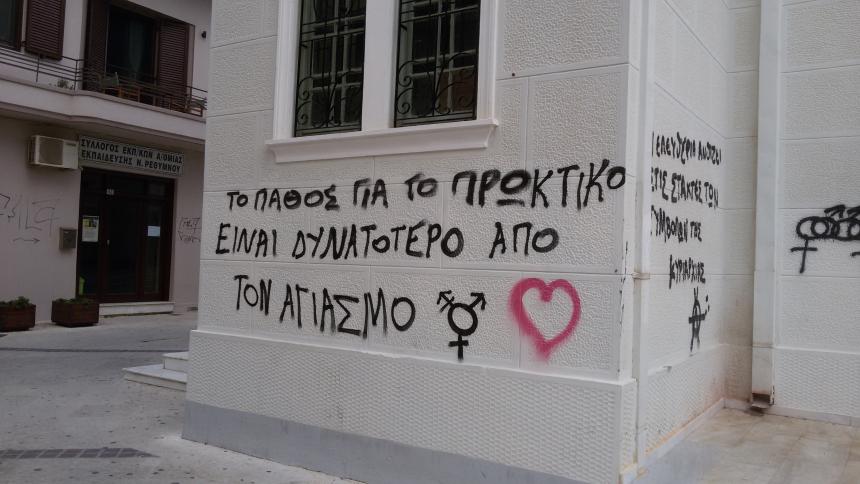 ΣΥΛΛΟΓΟΣ ΕΚΠ/ΚΩΝ Α/ΘΜΙΑΣ
ΕΚΠΑΙΔΕΥΣΗΣ Ν. ΡΕΘΥΜΝΟΥ
ΤΟ ΠΑΘΟΣ ΓΙΑ ΤΟ ΠΡΩΚΤΙΚΟ
ΕΙΝΑΙ ΔΥΝΑΤΟΤΕΡΟ ΑΠΟ
ΤΟΝ ΑΓΙΑΣΜΟ
ΕΛΕΥΘΕΡΙΑ
ΣΤΙΣ ΣΤΑΧΤΕΣ ΤΩΝ
ΣΥΜΒΟΛΩΝ ΤΗΣ
ΚΥΡΙΑΡΧΙΑΣ